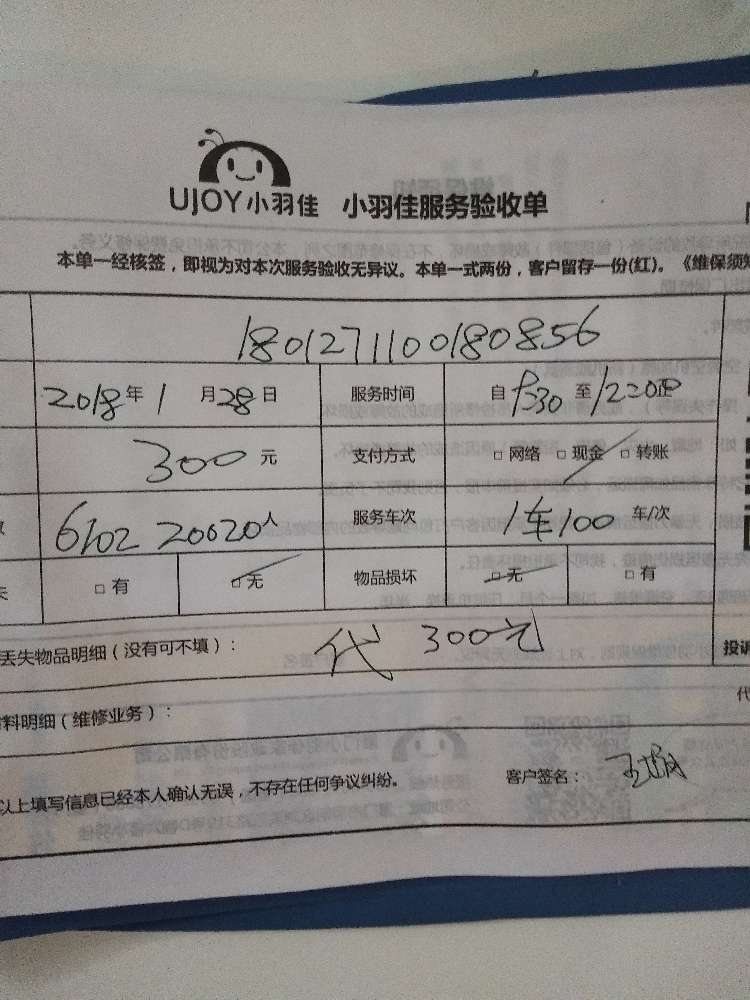 UJOY小羽佳 小羽佳服务验收单
本单一经核签，即视为对本次服务验收无异议。本单一式两份，客户留存一份(红)。《维保须知
1801271100180856
2018年1月28日 服务时间 自 9:30 至 12:00
300元 支付方式 □ 网络 □ 现金 □ 转账
6102 20020人 服务车次 1车100 车/次
□ 有 □ 无 物品损坏 □ 无 □ 有
丢失物品明细（没有可不填）： 代 300元
投诉
料明细（维修业务）：
以上填写信息已经本人确认无误，不存在任何争议纠纷。 客户签名：